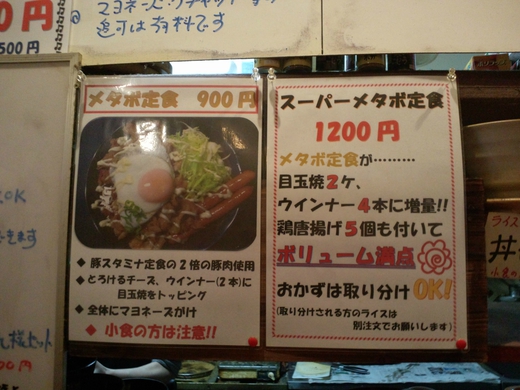 0円
500円
マヨネーズ
追可は有料です
メタボ定食 900円
◆豚スタミナ定食の2倍の豚肉使用
◆とろけるチーズ、ウインナー(2本)に
目玉焼をトッピング
◆全体にマヨネーズがけ
◆小食の方は注意!!
スーパーメタボ定食
1200円
メタボ定食が………
目玉焼2ケ、
ウインナー4本に増量!!
鶏唐揚げ5個も付いて
ボリューム満点
おかずは取り分けOK!
(取り分けされる方のライスは
別注文でお願いします)
OK
きます
ライス